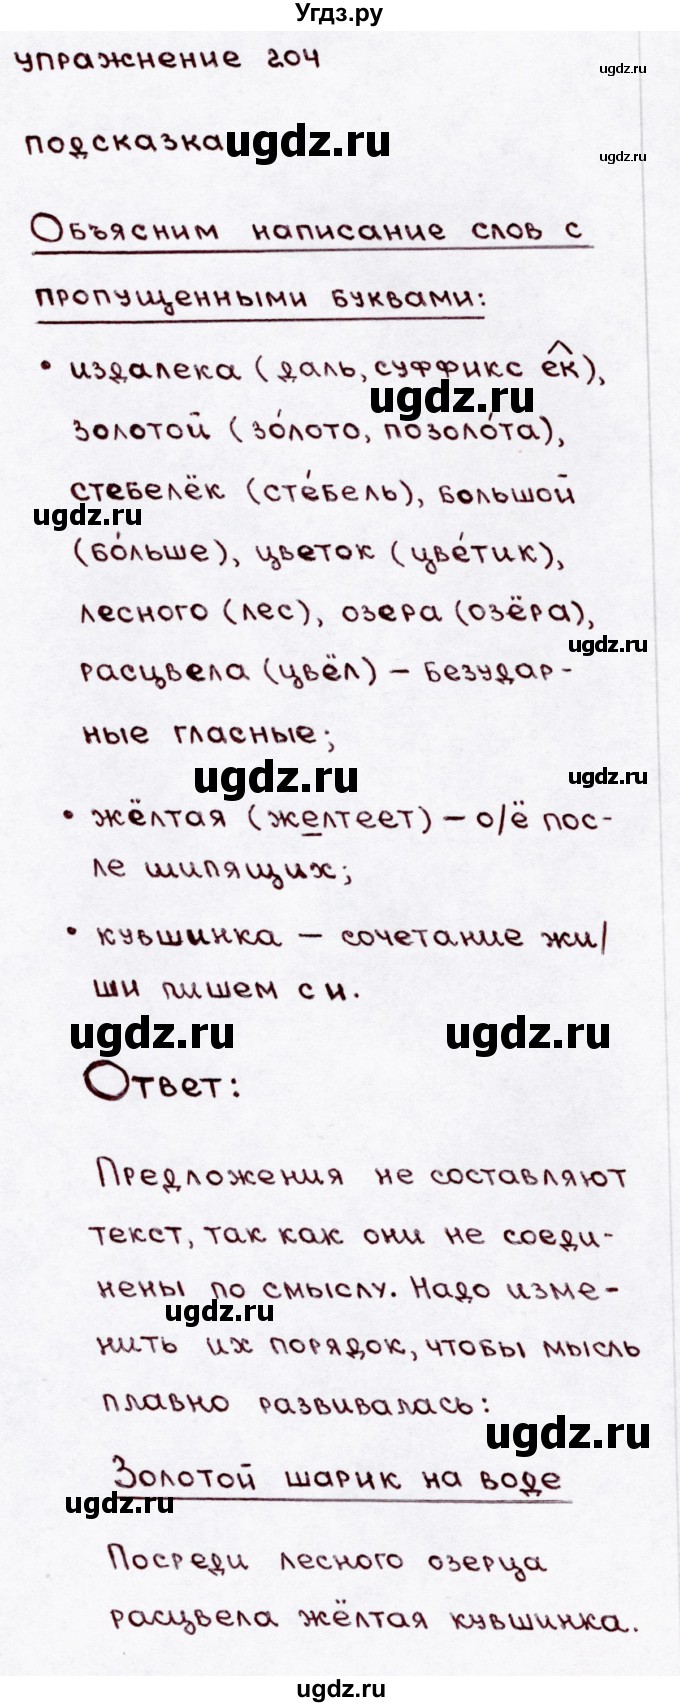 Угдз.ру
упражнение 204
ugdz.ru
подсказка ugdz.ru
ugdz.ru
Объясним написание слов с
пропущенными буквами:
• издалека (даль, суффикс ек),
ugdz.ru
золотой (зо́лото, позоло́та),
стебелёк (сте́бель), большой
ugdz.ru
(бо́льше), цветок (цве́тик),
лесного (лес), озера (озёра),
ugdz.ru
расцвела (цвёл) – безудар-
ные гласные;
ugdz.ru ugdz.ru
• жёлтая (желтеет) – о/ё пос-
ле шипящих;
• кувшинка – сочетание жи/
ши пишем с и.
ugdz.ru ugdz.ru
Ответ:
Предложения не составляют
текст, так как они не соеди-
нены по смыслу. Надо изме-
ugdz.ru
нить их порядок, чтобы мысль
плавно развивалась:
ugdz.ru
Золотой шарик на воде
ugdz.ru
Посреди лесного озерца
расцвела жёлтая кувшинка.
ugdz.ru